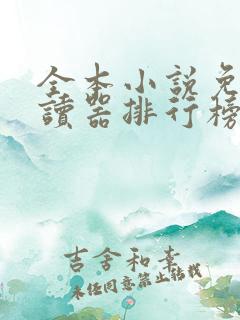 全本小說免
讀器排行榜
吉舍和幸
未经同意禁止转载